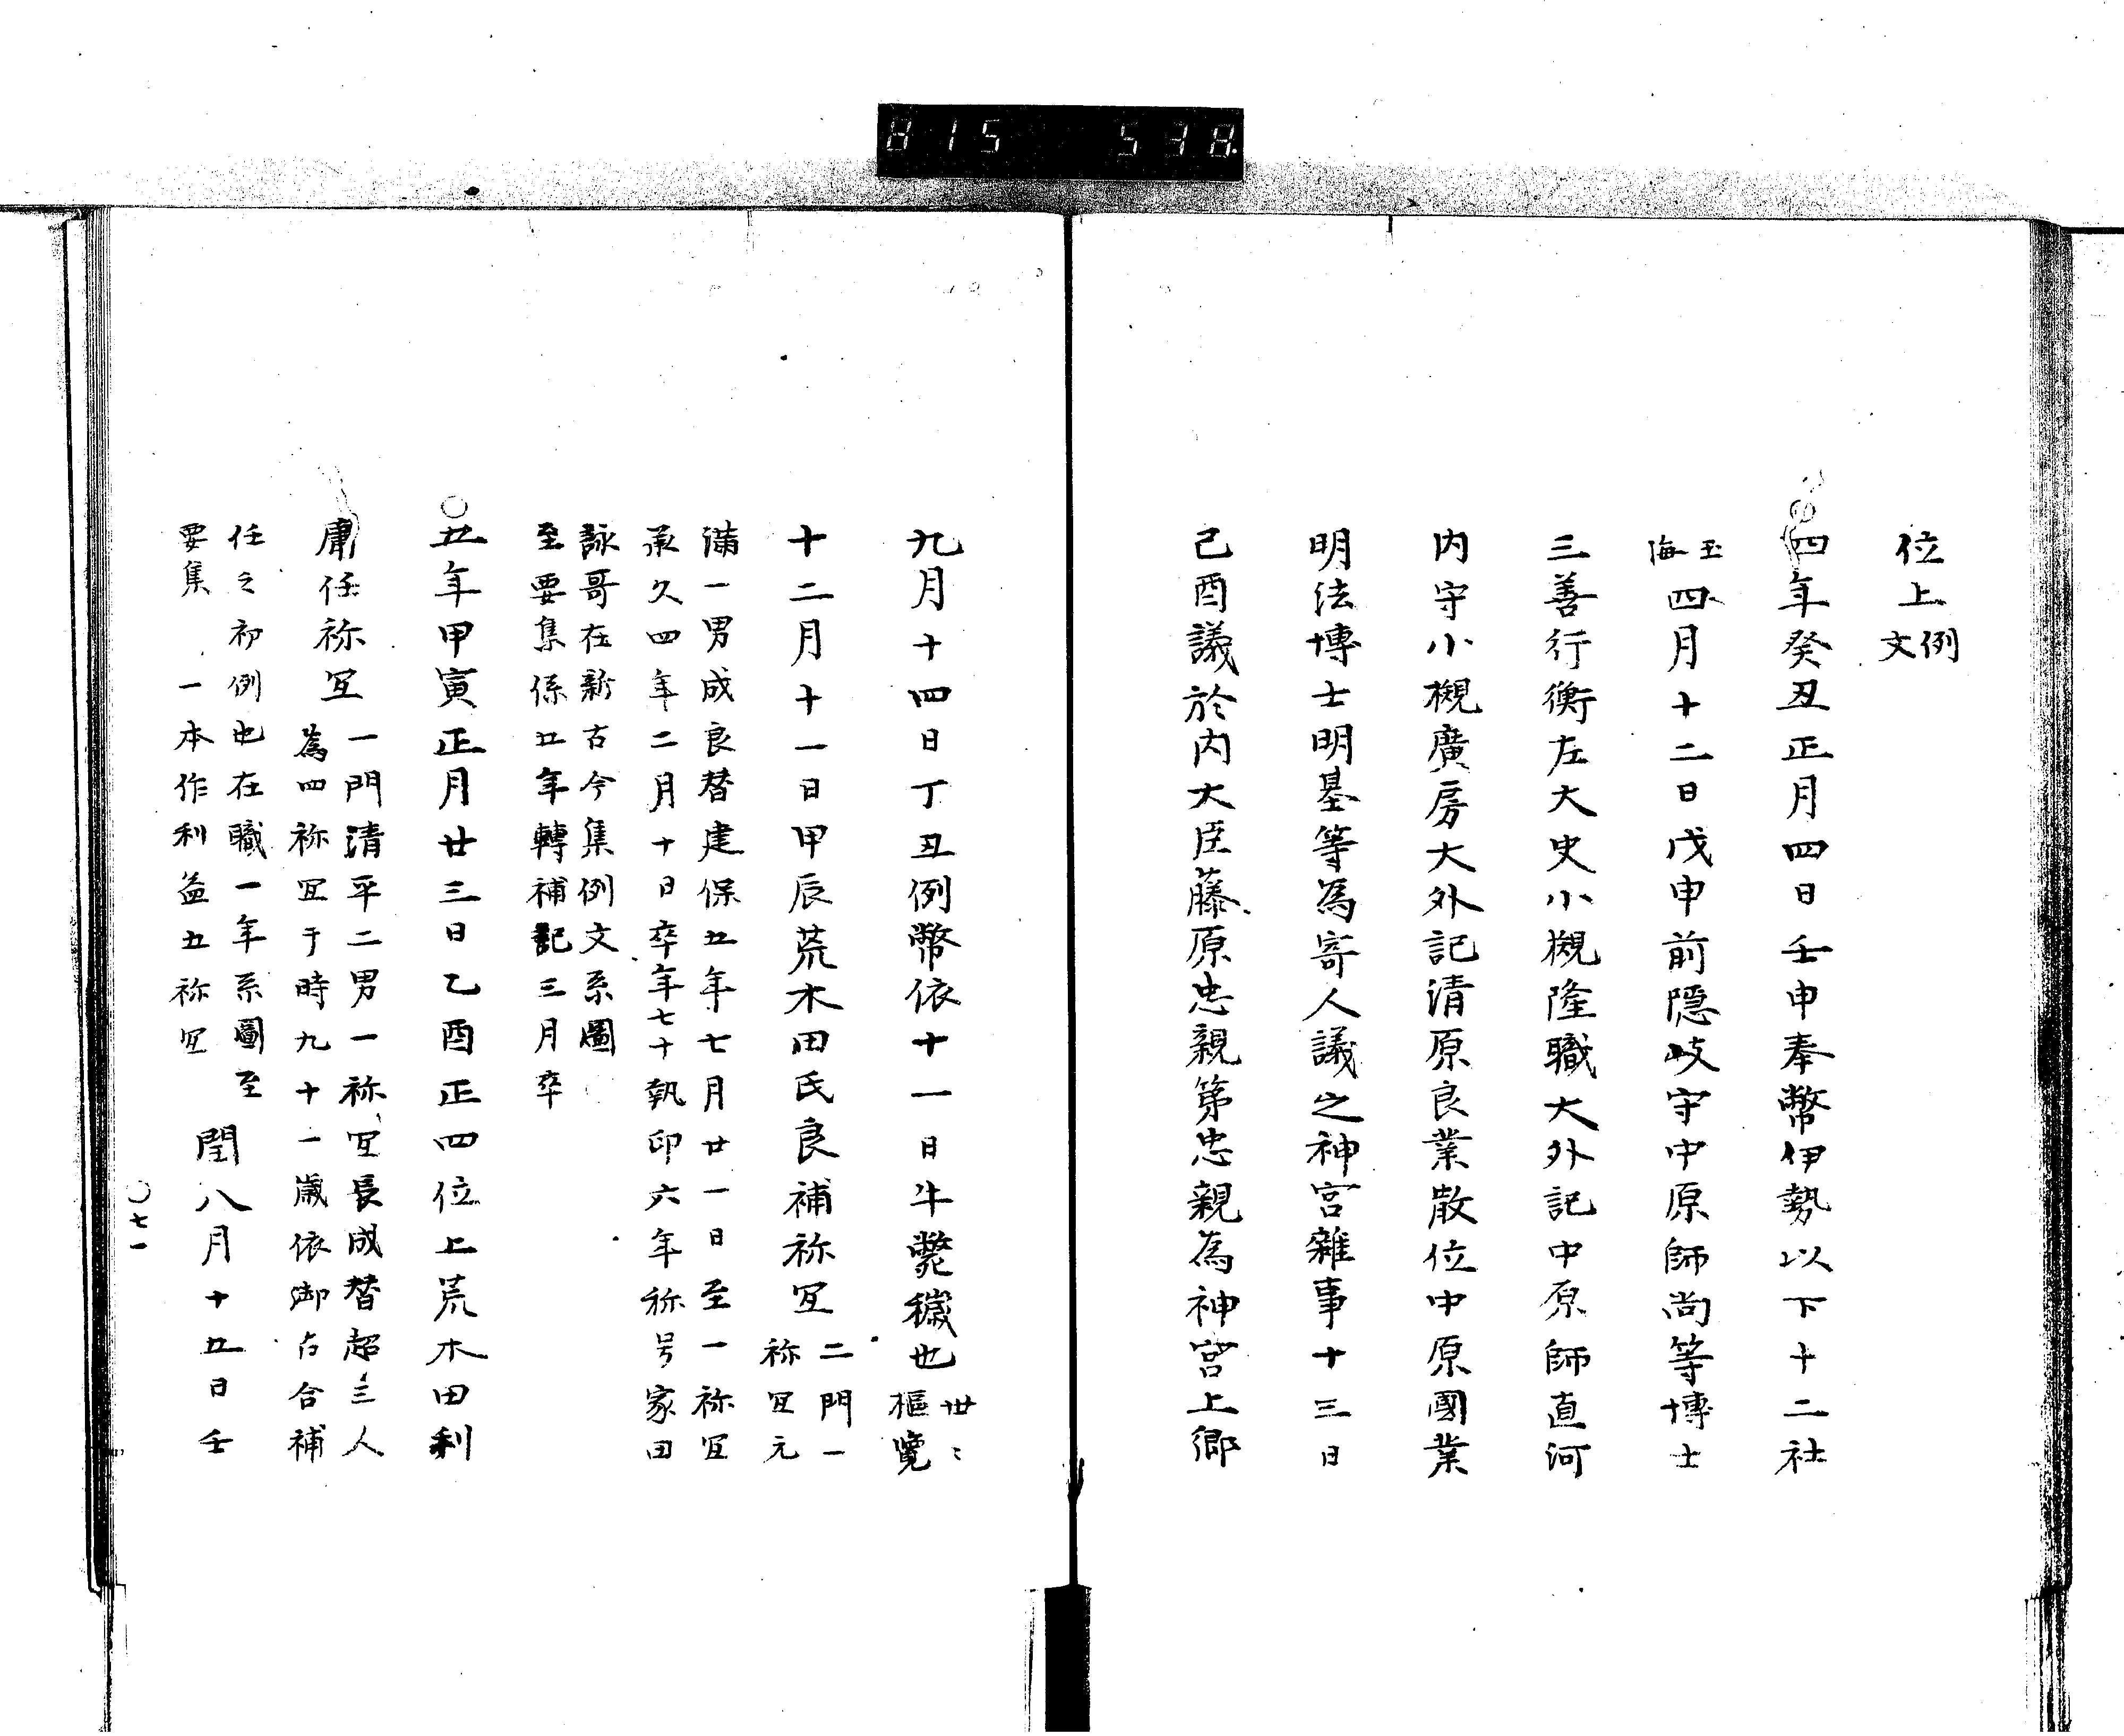 815 538
位上例文
四年癸丑正月四日壬申奉幣伊勢以下十二社
玉海四月十二日戊申前隠岐守中原師尚等博士
三善行衡左大史小槻隆職大外記中原師直河
内守小槻廣房大外記清原良業散位中原國業
明法博士明基等為寄人議之神宮雜事十三日
己酉議於内大臣藤原忠親第忠親為神宮上卿
九月十四日丁丑例幣依十一日牛斃穢也世々樞覽
十二月十一日甲辰荒木田氏良補祢宜二門一祢宜元
滿一男成良替建保五年七月廿一日至一祢宜
承久四年二月十日卒年七十執印六年称号家田
詠哥在新古今集例文系圖
至要集係五年轉補記三月卒
○五年甲寅正月廿三日乙酉正四位上荒木田利
庸任祢宜一門清平二男一祢宜長成替超三人
為四祢宜于時九十一歳依御占合補
任之初例也在職一年系圖至
要集一本作利益五祢宜閏八月十五日壬
○七一